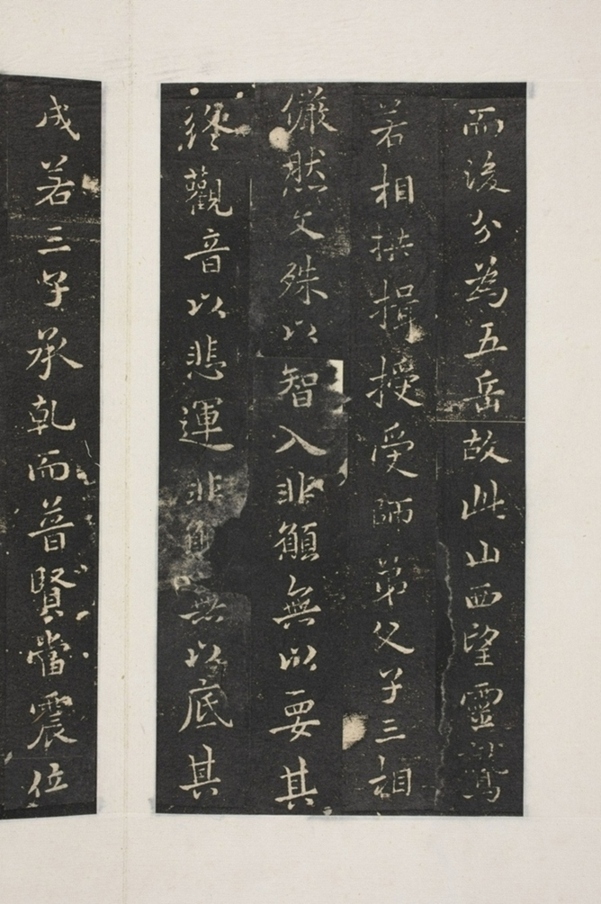 而後分為五岳故此山西望靈鷲
若相拱揖授受師弟父子三相
儼然文殊以智入非願無以要其
終觀音以悲運非願無以底其
成若三子承乾而普賢當震位